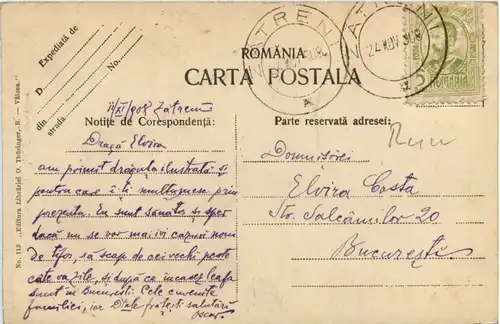 Expediată de
D
No.
din
strada
No. 113 „Editura Librăriei O. Thüringer, R. — Vâlcea."
ROMÂNIA
CARTA POSTALA
ZĂTRENI
24 NOV 908
ZĂTRENI
5 POSTA 5
ROMANIA
/XI/908 Zătreni
Notițe de Corespondență:
Parte reservată adresei:
Dragă Elvira
am primit drăguța ilustrată și
pentru care îți mulțumesc prin
prezenta. Eu sunt sănătos și sper
dacă nu se vor mai ivi cazuri noui
de tifos, să scap de cei vechi peste
câte-va zile, și după ce încasez leafa
sunt în București. Cele cuvenite
familiei, iar D-tale frățești salutări
Oscar
Domnișoarei
Elvira Costa
Str. Salcâmilor 20
București